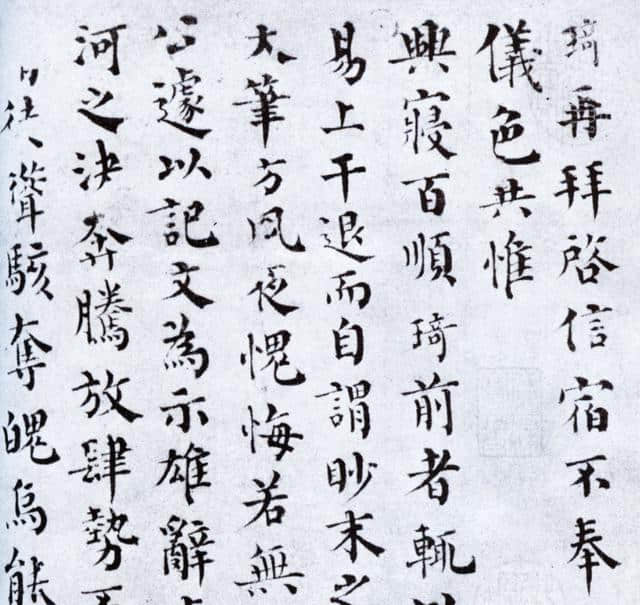 琦再拜啓信宿不奉
儀色共惟
興寢百順琦前者輒以
易上干退而自謂眇末之
大筆方夙夜愧悔若無
公遽以記文為示雄辭
河之決奔騰放肆勢不
徒聳駭奪魄烏能